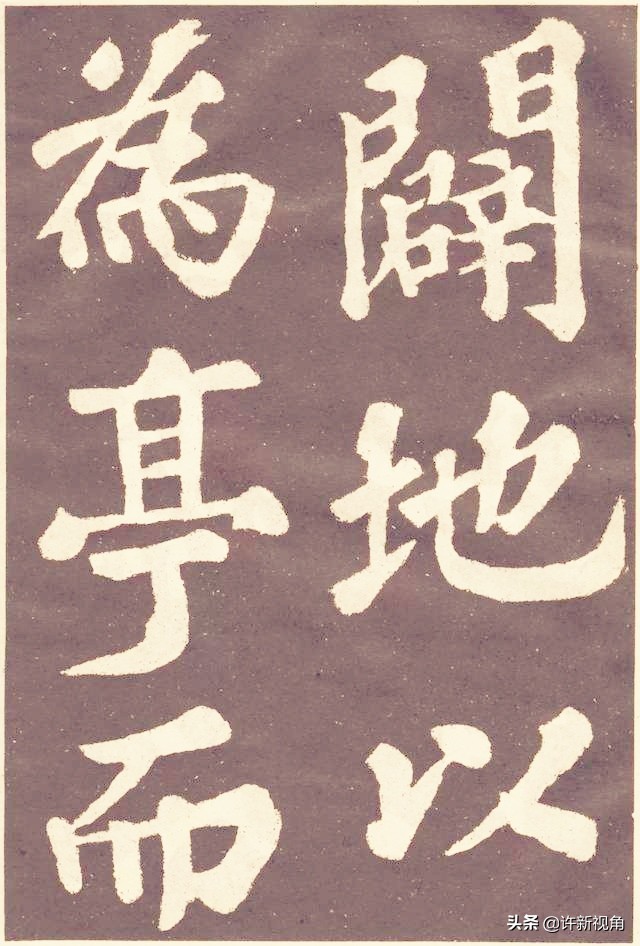 闢地以
為亭而
头条 @许新视角